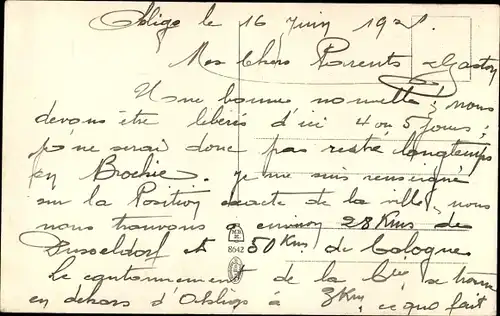 Ohligs le 16 Juin 192.
Mes chers Parents & Gaston
Une bonne nouvelle, nous
devons être liberés d'ici 4 ou 5 jours,
je ne serai donc pas resté longtemps
en Bochie. je me suis renseigné
sur la Position exacte de la ville, nous
nous trouvons a environ 28 Kms de
Dusseldorf et 50 Kms de Cologne
8642
Le cantonnement de la Cie se trouve
en dehors d'Ohligs à 3 Km, ce qui fait